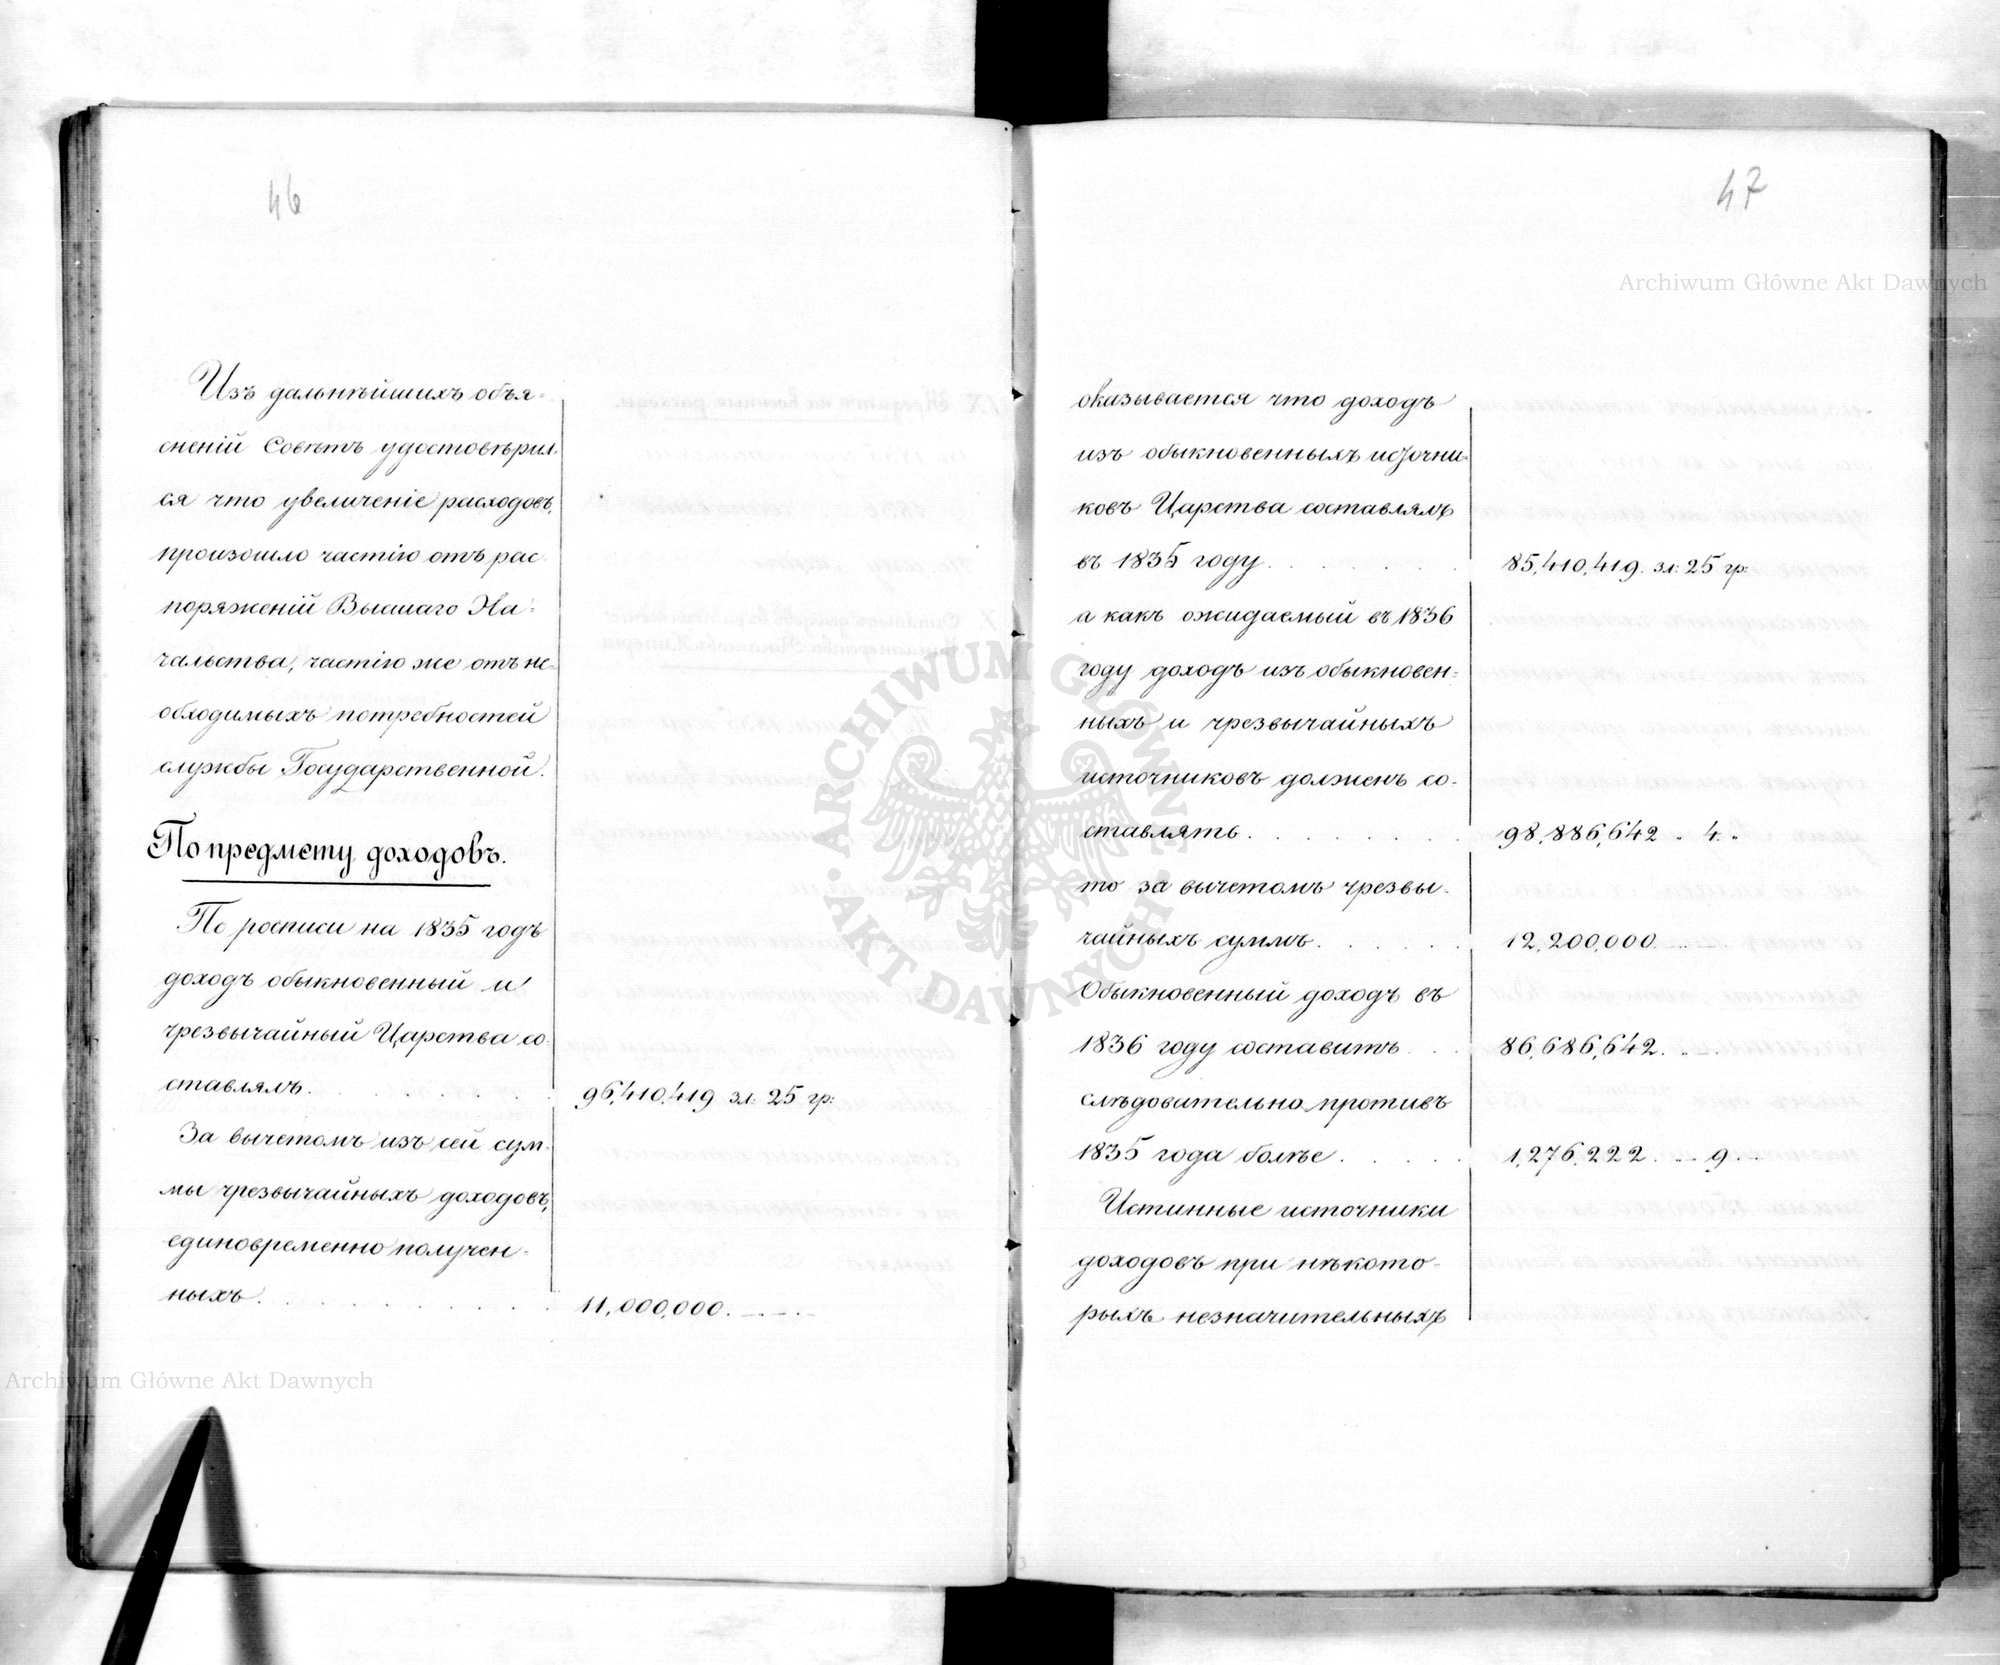 46
Изъ дальнѣйшихъ объя-
сненій Совѣтъ удостовѣрил-
ся что увеличеніе расходовъ,
произошло частію отъ рас-
поряженій Высшаго На-
чальства, частію же отъ не-
обходимыхъ потребностей
службы Государственной.
По предмету доходовъ.
По росписи на 1835 годъ
доходъ обыкновенный и
чрезвычайный Царства со-
ставлялъ . . . . . . 96,410,419 зл: 25 гр:
За вычетомъ изъ сей сум-
мы чрезвычайныхъ доходовъ,
единовременно получен-
ныхъ . . . . . . . 11,000,000. — . — .
47
оказывается что доходъ
изъ обыкновенныхъ источни-
ковъ Царства составлялъ
въ 1835 году . . . . . 85,410,419. зл: 25 гр:
а какъ ожидаемый въ 1836
году доходъ изъ обыкновен-
ныхъ и чрезвычайныхъ
источниковъ долженъ со-
ставлять . . . . . . 98,886,642 „ 4. „
то за вычетомъ чрезвы-
чайныхъ суммъ . . . . 12,200,000. — . —
Обыкновенный доходъ въ
1836 году составитъ . . 86,686,642. „ — .
слѣдовательно противъ
1835 года болѣе . . . . 1,276,222. — 9. —
Истинные источники
доходовъ при нѣкото-
рыхъ незначительныхъ
Archiwum Główne Akt Dawnych
Archiwum Główne Akt Dawnych
ARCHIWUM GŁÓWNE · AKT DAWNYCH ·